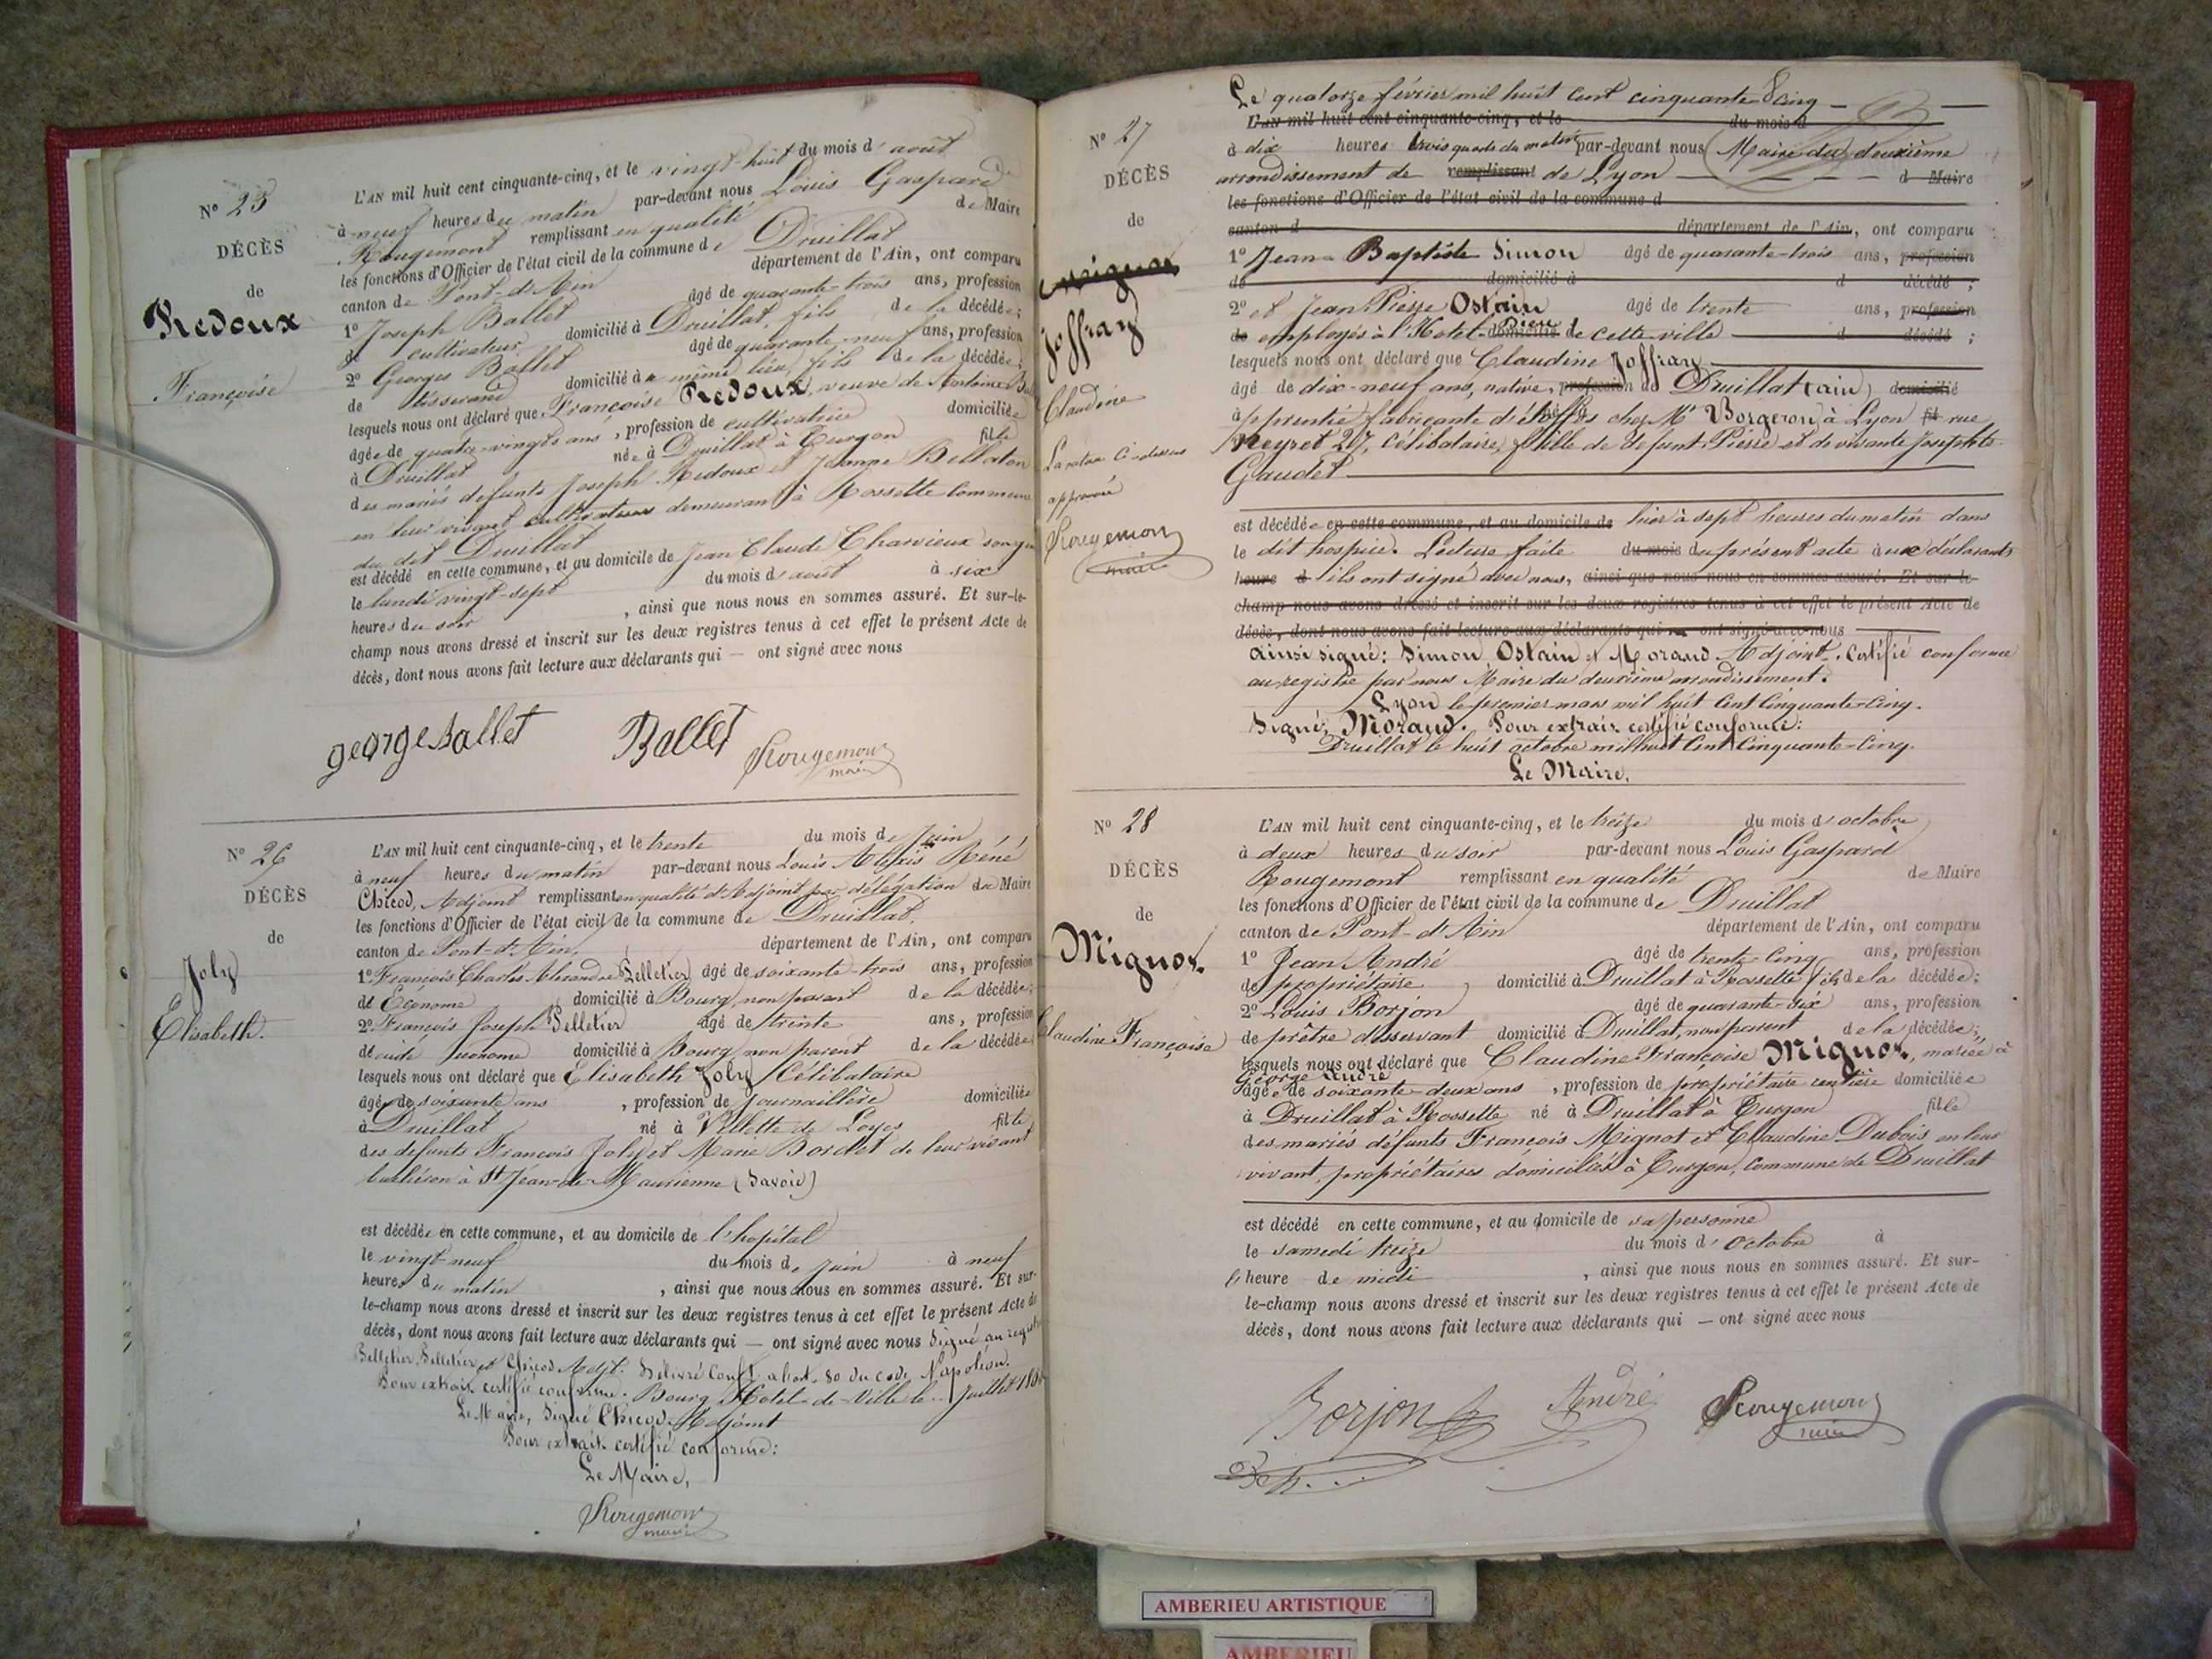 N° 25
DÉCÈS
de
Redoux
Françoise
L'AN mil huit cent cinquante-cinq, et le vingt-huit du mois d'août
à neuf heures du matin par-devant nous Louis Gaspard
Rougemont remplissant en qualité de Maire
les fonctions d'Officier de l'état civil de la commune de Druillat
canton de Pont-d'Ain département de l'Ain, ont comparu
1° Joseph Ballet âgé de quarante-trois ans, profession
de cultivateur domicilié à Druillat, fils de la décédée;
2° Georges Ballet âgé de quarante-neuf ans, profession
de tisserand domicilié au même lieu, fils de la décédée;
lesquels nous ont déclaré que Françoise Redoux, veuve de Antoine
âgée de quatre-vingts ans, profession de cultivatrice domiciliée
à Druillat née à Druillat à Turgon fille
des mariés défunts Joseph Redoux et Jeanne Bellaton
en leur vivant cultivateurs demeurant à Rossette commune
du dit Druillat
est décédé en cette commune, et au domicile de Jean Claude Charvieux
le lundi vingt-sept du mois d'août à six
heures du soir, ainsi que nous nous en sommes assuré. Et sur-le-
champ nous avons dressé et inscrit sur les deux registres tenus à cet effet le présent Acte de
décès, dont nous avons fait lecture aux déclarants qui — ont signé avec nous
george Ballet Ballet Rougemont
maire
N° 26
DÉCÈS
de
Joly
Elisabeth.
L'AN mil huit cent cinquante-cinq, et le trente du mois de Juin
à neuf heures du matin par-devant nous Louis Alexis Réné
Chicod, Adjoint remplissant en qualité d'Adjoint par délégation du Maire
les fonctions d'Officier de l'état civil de la commune de Druillat,
canton de Pont-d'Ain, département de l'Ain, ont comparu
1° François Charles Alexandre Pelletier âgé de soixante-trois ans, profession
de Econome domicilié à Bourg, non parent de la décédée;
2° François Joseph Pelletier âgé de trente ans, profession
de aide econome domicilié à Bourg non parent de la décédée
lesquels nous ont déclaré que Elisabeth Joly Célibataire
âgée de soixante ans, profession de journaillère domiciliée
à Druillat né à Villette de Loyes fille
des défunts François Joly et Marie Bordet de leur vivant
à St Jean-de-Maurienne (Savoie)
est décédée en cette commune, et au domicile de l'hopital
le vingt-neuf du mois de juin à neuf
heures du matin, ainsi que nous nous en sommes assuré. Et sur-
le-champ nous avons dressé et inscrit sur les deux registres tenus à cet effet le présent Acte de
décès, dont nous avons fait lecture aux déclarants qui — ont signé avec nous Signé au registre
Pelletier, Pelletier et Chicod Adjt. Délivré Conft. à l'art. 80 du code Napoléon.
Pour extrait certifié conforme. Bourg Hotel-de-Ville le Juillet
Le Maire, Signé Chicod Adjoint
Pour extrait certifié conforme:
Le Maire,
Rougemont
maire
N° 27
DÉCÈS
de
Mignot
Joffray
Claudine
La rature ci-dessus
approuvée
Rougemont
maire
Le quatorze février mil huit cent cinquante cinq
L'AN mil huit cent cinquante-cinq, et le du mois d
à dix heures trois quarts du matin par-devant nous Maire du deuxième
arrondissement de remplissant de Lyon d Maire
les fonctions d'Officier de l'état civil de la commune d
canton d département de l'Ain, ont comparu
1° Jean-Baptiste Simon âgé de quarante-trois ans, profession
de domicilié à d décédé;
2° et Jean Pierre Ostain âgé de trente ans, profession
de employés à l'Hotel-Dieu domicilié de cette ville d décédé;
lesquels nous ont déclaré que Claudine Joffray
âgé de dix-neuf ans, native, profession de Druillat (ain) domicilié
apprentie fabricante d'étoffes chez Mr Borgeron à Lyon fil rue
Neyret 27, Célibataire, fille de défunt Pierre et de vivante Josephte
Gaudet
est décédée en cette commune, et au domicile de hier à sept heures du matin dans
le dit hospice. Lecture faite du mois du présent acte aux déclarants
heure d ils ont signé avec nous, ainsi que nous nous en sommes assuré. Et sur-le-
champ nous avons dressé et inscrit sur les deux registres tenus à cet effet le présent Acte de
décès, dont nous avons fait lecture aux déclarants qui ont signé avec nous
Ainsi signé: Simon, Ostain et Morand Adjoint. Certifié conforme
au registre par nous Maire du deuxième arrondissement.
Lyon le premier mars mil huit Cent Cinquante-Cinq.
Signé, Morand. Pour extrait certifié conforme:
Druillat le huit octobre mil huit Cent Cinquante-Cinq.
Le Maire,
N° 28
DÉCÈS
de
Mignot.
Claudine Françoise
L'AN mil huit cent cinquante-cinq, et le treize du mois d'octobre
à deux heures du soir par-devant nous Louis Gaspard
Rougemont remplissant en qualité de Maire
les fonctions d'Officier de l'état civil de la commune de Druillat
canton de Pont-d'Ain département de l'Ain, ont comparu
1° Jean André âgé de trente-cinq ans, profession
de propriétaire, domicilié à Druillat à Rossette fils de la décédée;
2° Louis Borjon âgé de quarante-six ans, profession
de prêtre desservant domicilié à Druillat, non parent de la décédée;
lesquels nous ont déclaré que Claudine Françoise Mignot, mariée à
George André
âgée de soixante-deux ans, profession de propriétaire rentière domiciliée
à Druillat à Rossette né à Druillat à Turgon fille
des mariés défunts François Mignot et Claudine Dubois, en leur
vivant, propriétaires domiciliés à Turgon, Commune de Druillat
est décédé en cette commune, et au domicile de sa personne
le samedi treize du mois d'Octobre à
l'heure de midi, ainsi que nous nous en sommes assuré. Et sur-
le-champ nous avons dressé et inscrit sur les deux registres tenus à cet effet le présent Acte de
décès, dont nous avons fait lecture aux déclarants qui — ont signé avec nous
Borjon André Rougemont
maire
AMBERIEU ARTISTIQUE
AMBERIEU